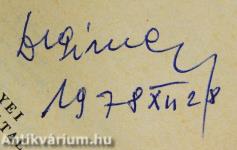 1978 XII 28
YEI
TAL
Antikvárium.hu